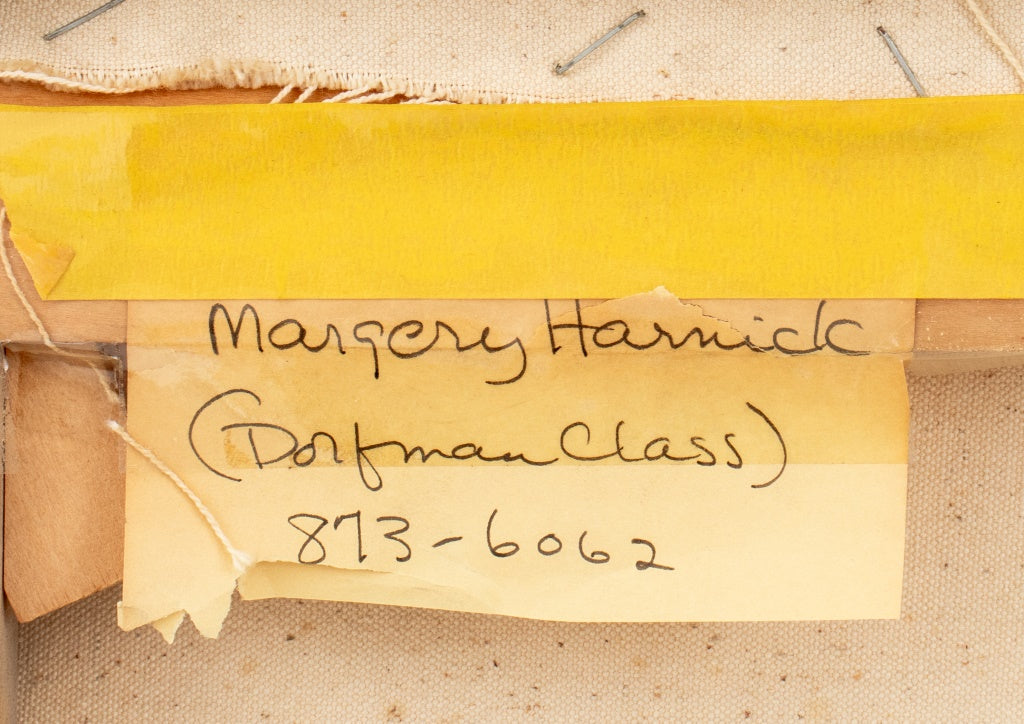 Margery Harnick
(Dorfman Class)
873-6062